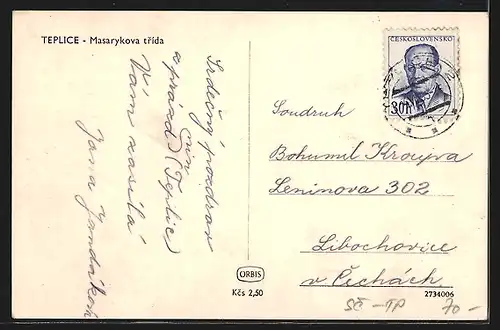 TEPLICE - Masarykova třída
Srdečný pozdrav
z prázd nin
(Teplic)
Vám zasílá
Jana
ČESKOSLOVENSKO
30h
Soudruh
Bohumil
Leninova 302
Libochovice
v Čechách
ORBIS
Kčs 2,50
2734006
SČ - TP
70 -